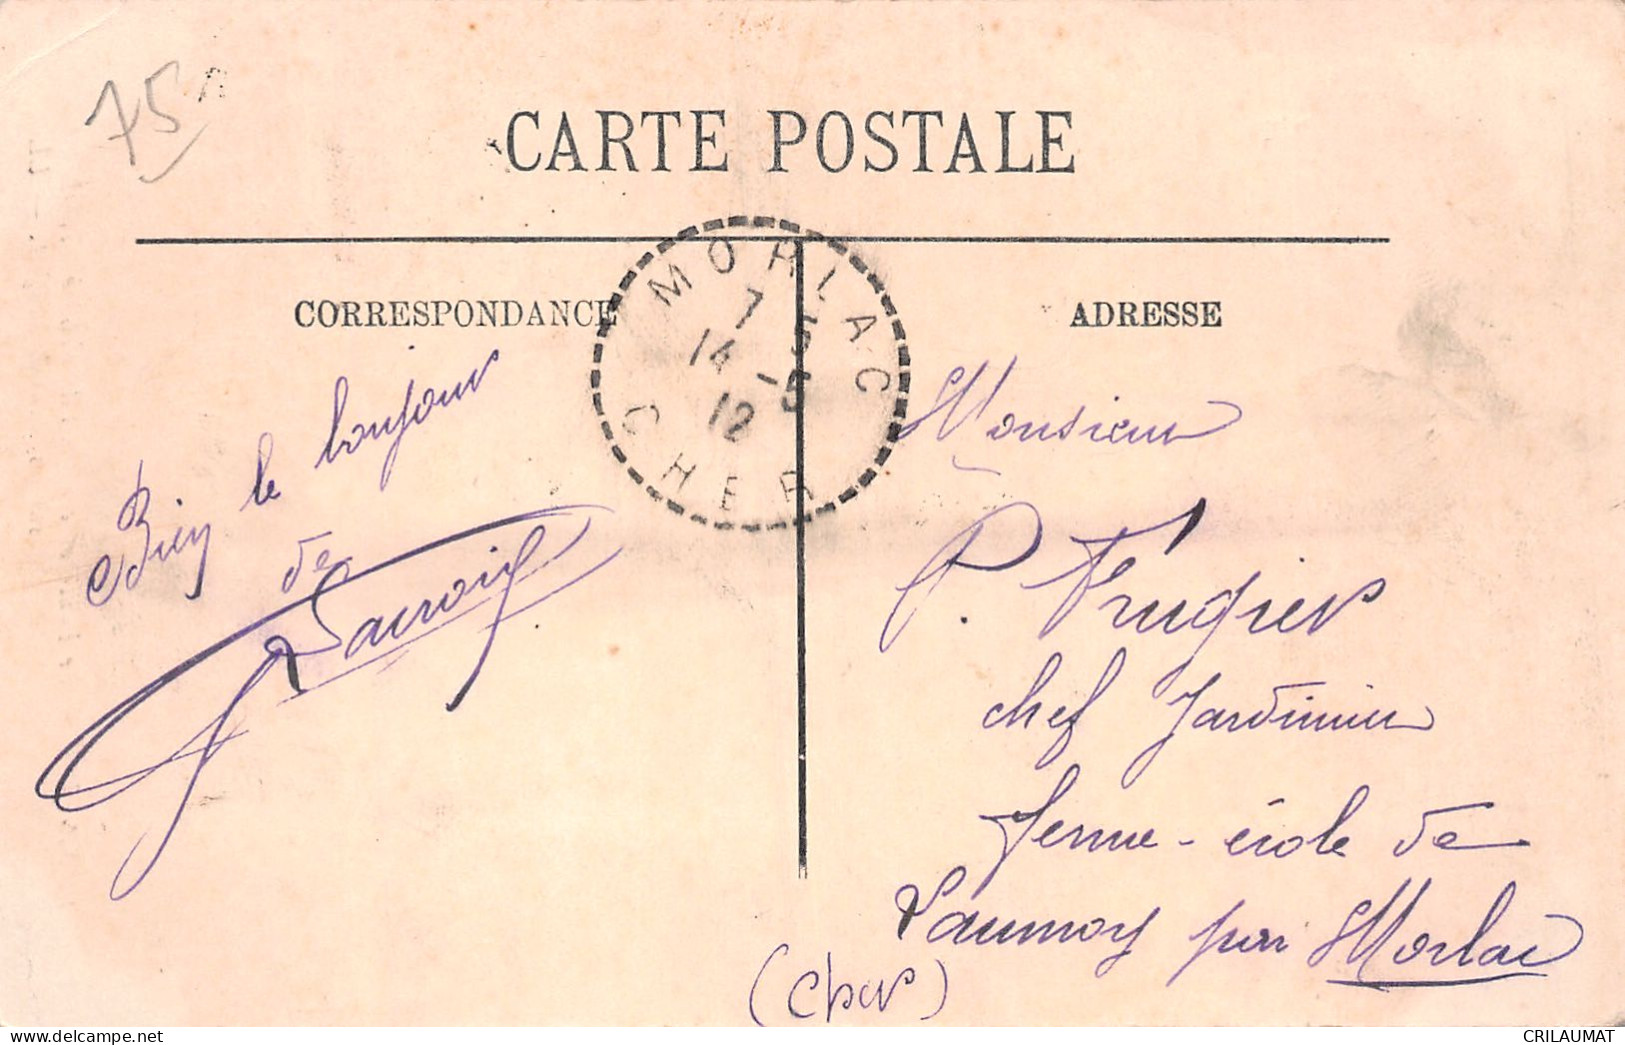 75
CARTE POSTALE
MORLAC
7 5
14 -5
12
CHER
CORRESPONDANCE
ADRESSE
Bien le bonjour
de
Lacroix
Monsieur
P. Frugier
chef Jardinier
ferme-école de
Laumoy par Morlac
(Cher)
delcampe.net
CRILAUMAT